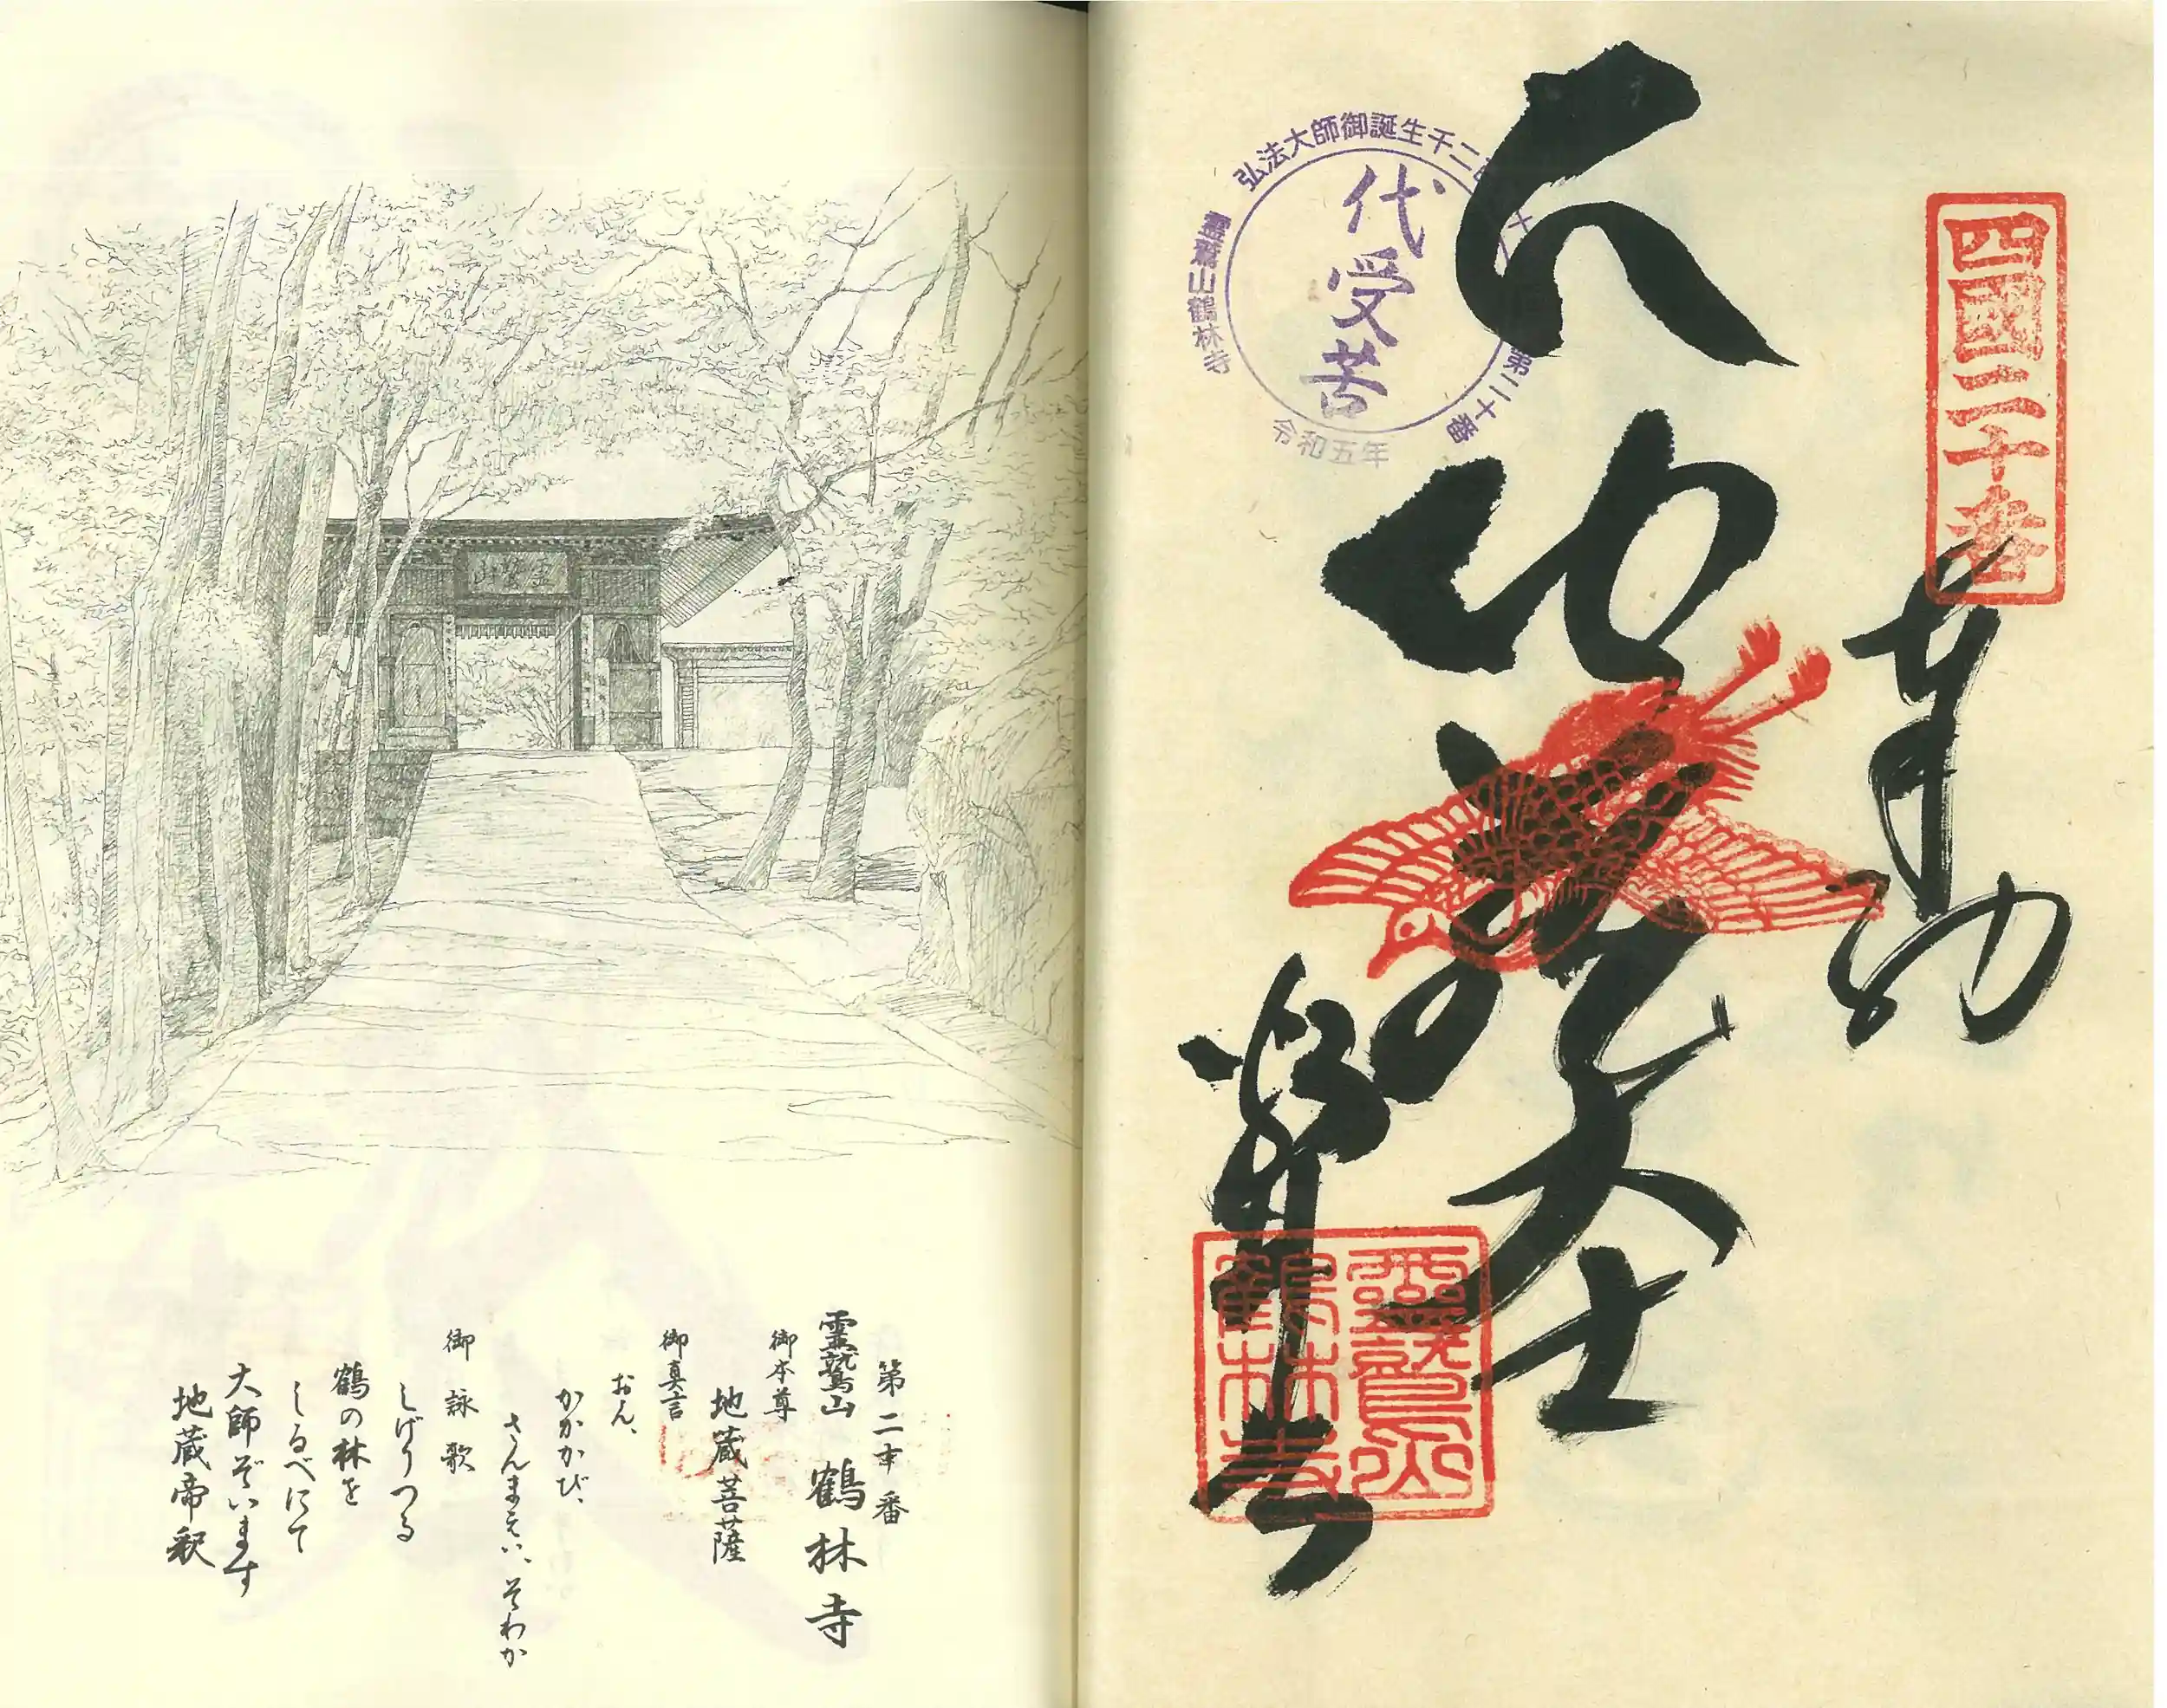 四國二十番
奉納
地蔵大士
鶴林寺
霊鷲山
鶴林寺
弘法大師御誕生千二百五十年
第二十番
霊鷲山鶴林寺
令和五年
代受苦
霊鷲山
第二十番
霊鷲山 鶴林寺
御本尊
地蔵菩薩
御真言
おん、
かかかび、
さんまえい、そわか
御詠歌
しげりつる
鶴の林を
しるべにて
大師ぞいます
地蔵帝釈